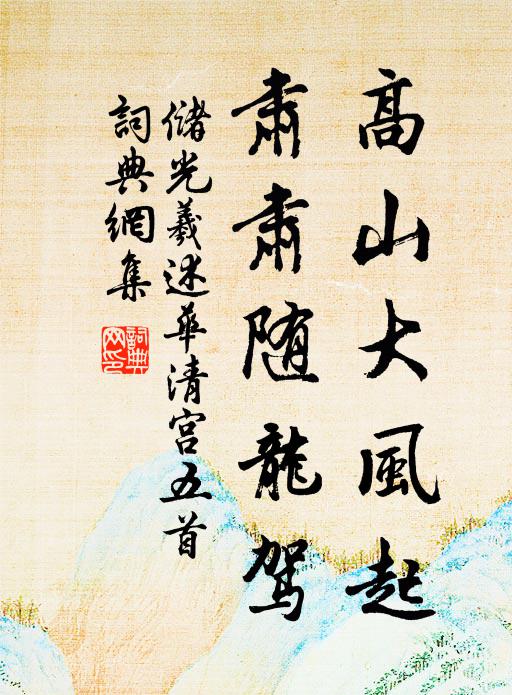 高山大風起
肅肅随龍驾
儲光羲述華清宫五首
詞典網集
詞典网印